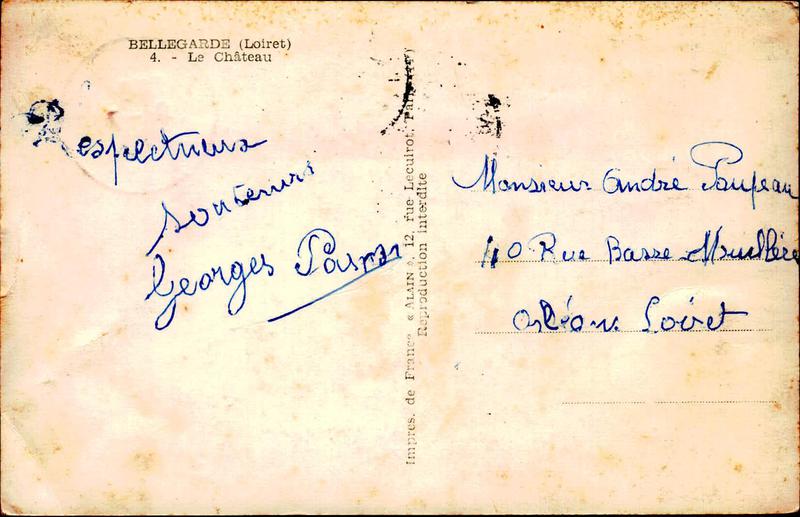 BELLEGARDE (Loiret)
4. - Le Château
Respectueux
souvenirs
Georges
Impres. de France « ALAIN », 12, rue Lecuirot, Paris
Reproduction interdite
Monsieur André Poupeau
40 Rue Basse
Orléans Loiret